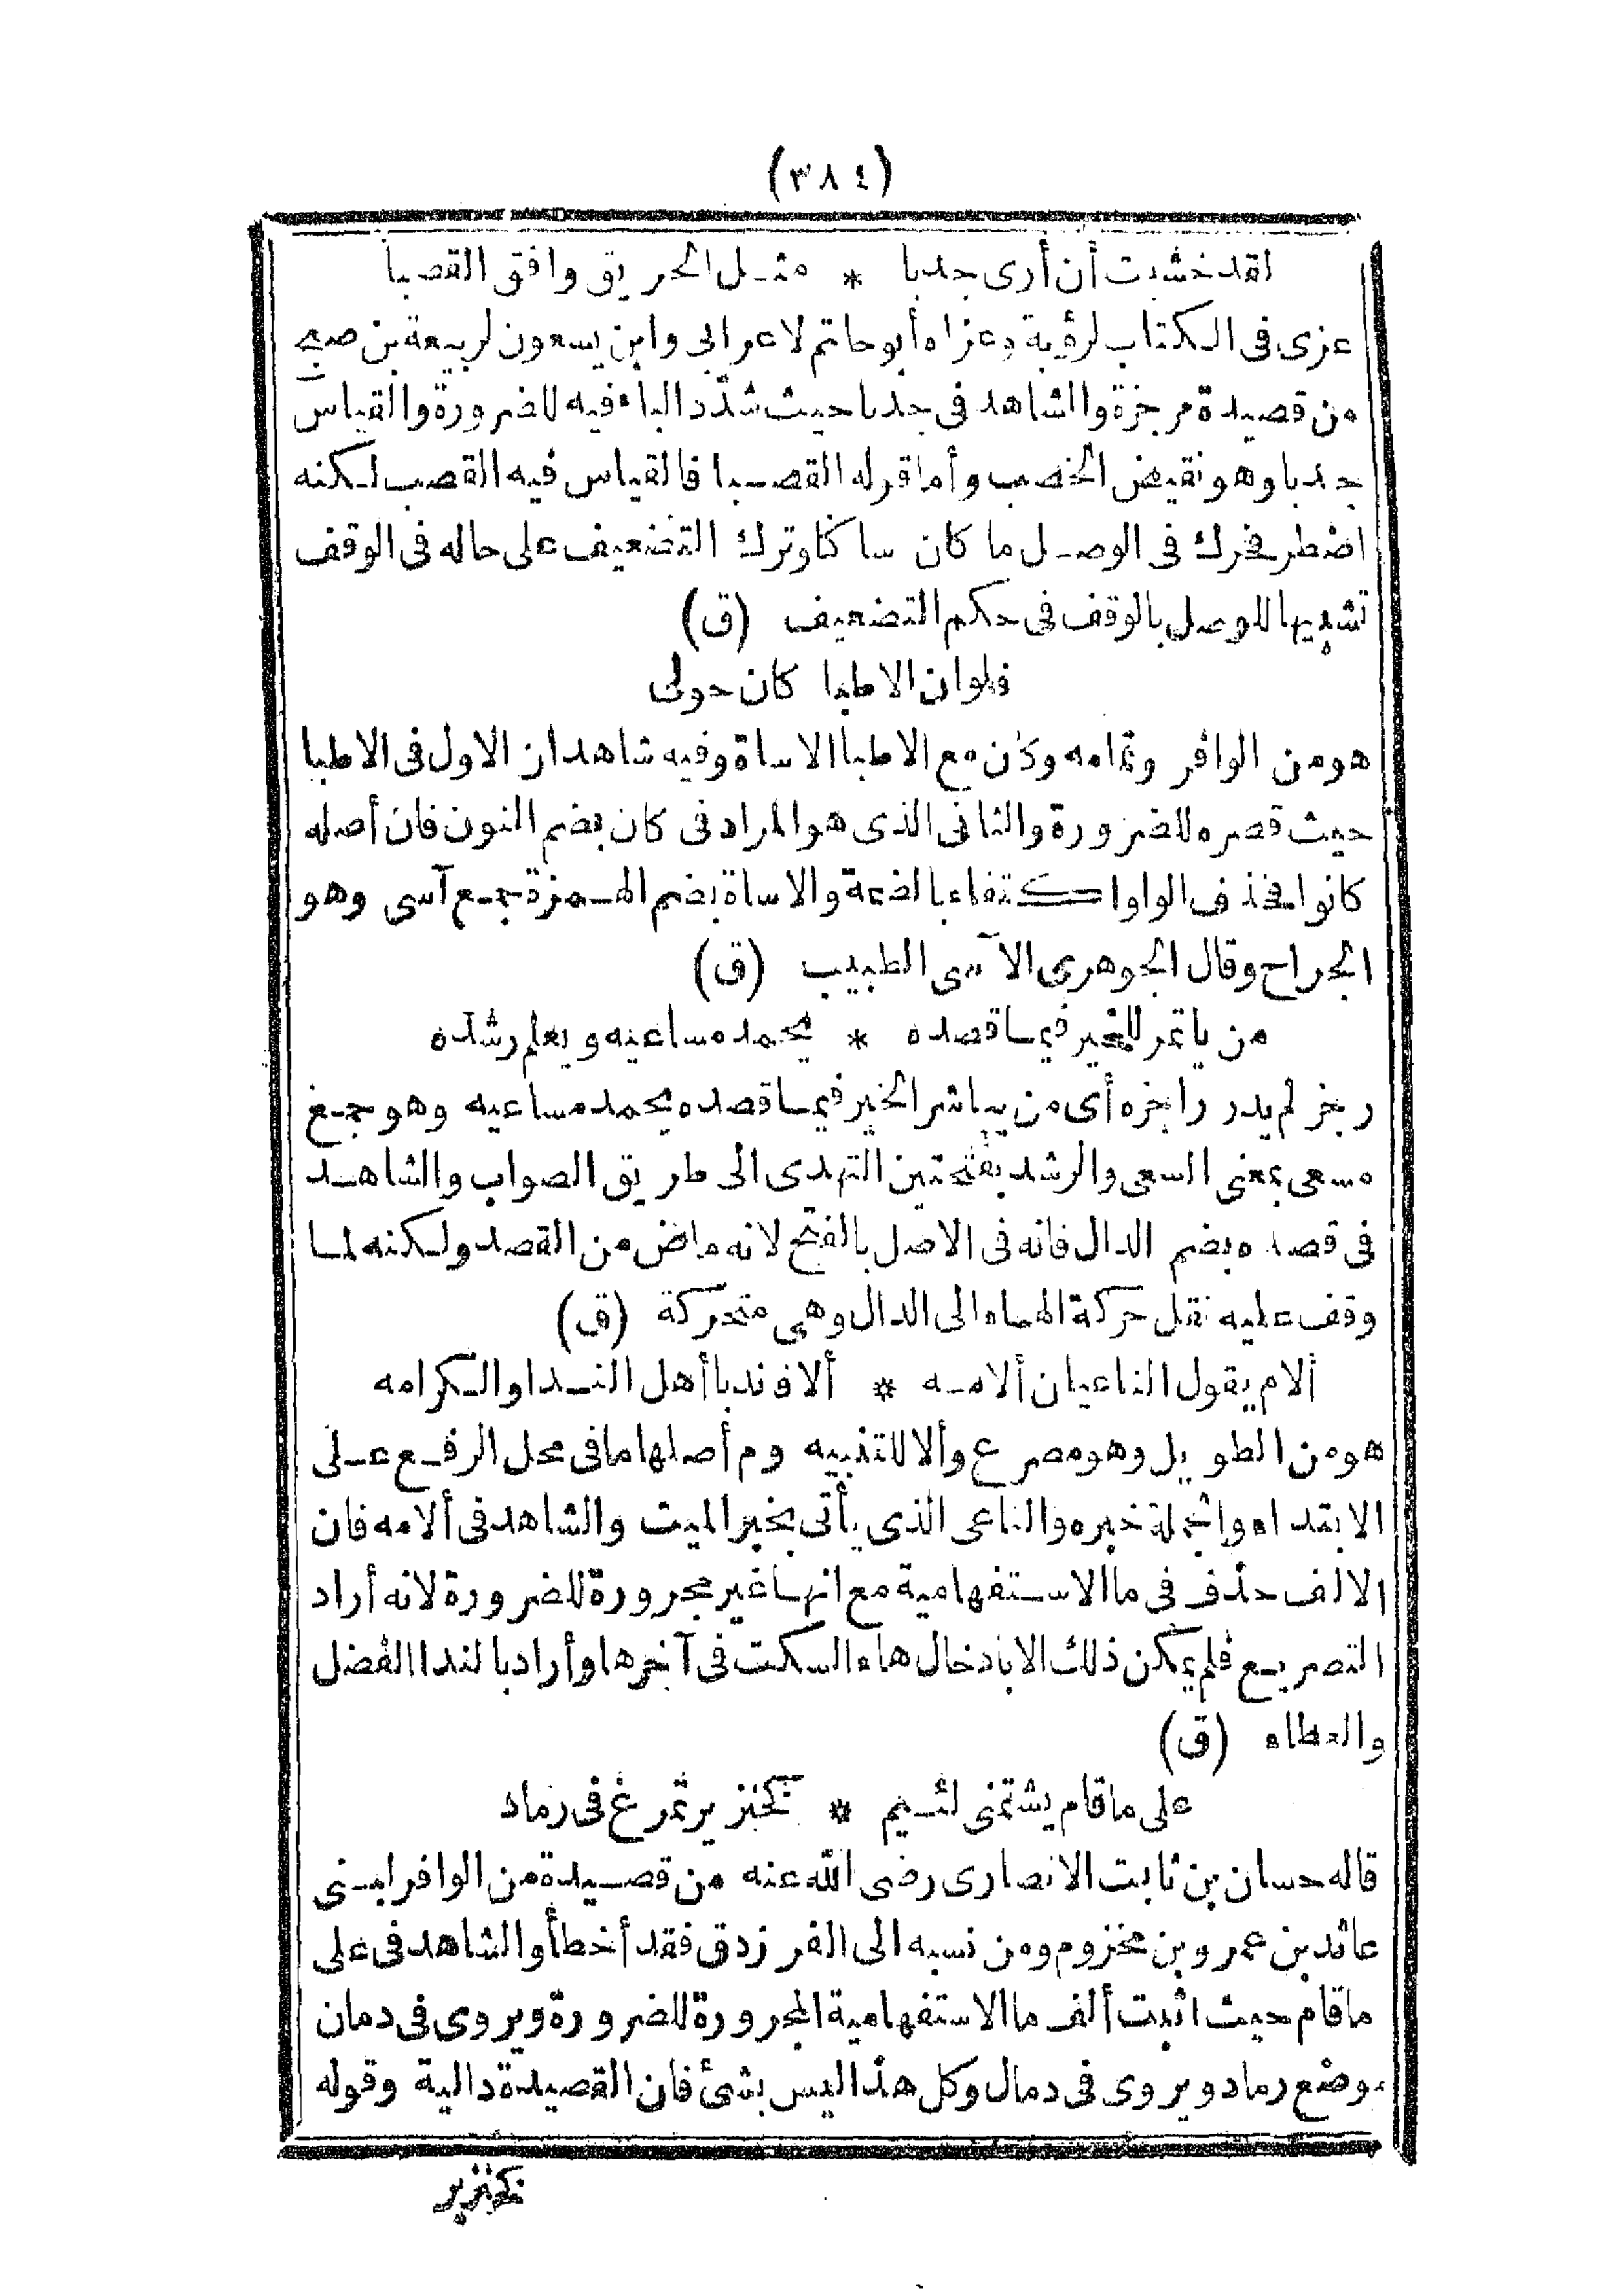 (٣٨٤)
لقد خشيت أن أرى جدبا * مثل الحريق وافق القصبا
عزى فى الكتاب لرؤبة وعزاه أبو حاتم لاعرابى وابن يسعون لربيعة بن صبح
من قصيدة مرجزة والشاهد فى جدبا حيث شدّد الباء فيه للضرورة والقياس
جدبا وهو نقيض الخصب وأما قوله القصبا فالقياس فيه القصب لكنه
اضطر فحرك فى الوصل ما كان ساكنا وترك التضعيف على حاله فى الوقف
تشبيها للوصل بالوقف فى حكم التضعيف (ق)
فلو ان الاطبا كان حولى
هو من الوافر وتمامه وكان مع الاطبا الاساة وفيه شاهدان الاول فى الاطبا
حيث قصره للضرورة والثانى الذى هو المراد فى كان بضم النون فان أصله
كانوا فحذف الواو اكتفاء بالضمة والاساة بضم الهمزة جمع آسى وهو
الجراح وقال الجوهرى الآسى الطبيب (ق)
من ياتمر للخير فيما قصده * يحمد مساعيه ويعلم رشده
رجز لم يدر راجزه أى من يباشر الخير فيما قصده يحمد مساعيه وهو جمع
مسعى بمعنى السعى والرشد بفتحتين التهدى الى طريق الصواب والشاهد
فى قصده بضم الدال فانه فى الاصل بالفتح لانه ماض من القصد ولكنه لما
وقف عليه نقل حركة الهاء الى الدال وهى متحركة (ق)
ألام يقول الناعيان ألامه * ألا فاندبا أهل الندا والكرامه
هو من الطويل وهو مصرع وألا للتنبيه وم أصلها ما فى محل الرفع على
الابتداء والجملة خبره والناعى الذى يأتى بخبر الميت والشاهد فى ألامه فان
الالف حذف فى ما الاستفهامية مع انها غير مجرورة للضرورة لانه أراد
التصريع فلم يمكن ذلك الا بادخال هاء السكت فى آخرها وأراد بالندا الفضل
والعطاء (ق)
على ما قام يشتمنى لئيم * كخنزير تمرغ فى رماد
قاله حسان بن ثابت الانصارى رضى الله عنه من قصيدة من الوافر لبنى
عائد بن عمرو بن مخزوم ومن نسبه الى الفرزدق فقد أخطأ والشاهد فى على
ما قام حيث اثبت ألف ما الاستفهامية المجرورة للضرورة ويروى فى دمان
موضع رماد ويروى فى دمال وكل هذا ليس بشئ فان القصيدة دالية وقوله
كخنزير